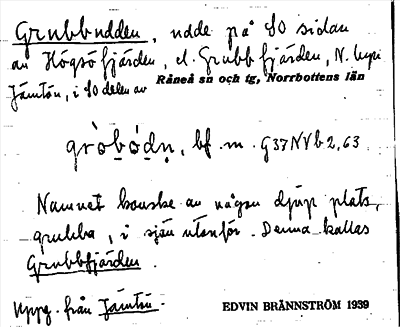 Grubbudden, udde på SO sidan
av Högsöfjärden, el. Grubbfjärden, N.
Jämtön, i SO delen av Råneå sn och tg, Norrbottens län
gròb̬ó̬dn̥, bf. m. G37NVb2,63.
Namnet kanske av någon djup plats,
grubba, i sjön utanför. Denna kallas
Grubbfjärden.
Uppg. från Jämtön. EDVIN BRÄNNSTRÖM 1939